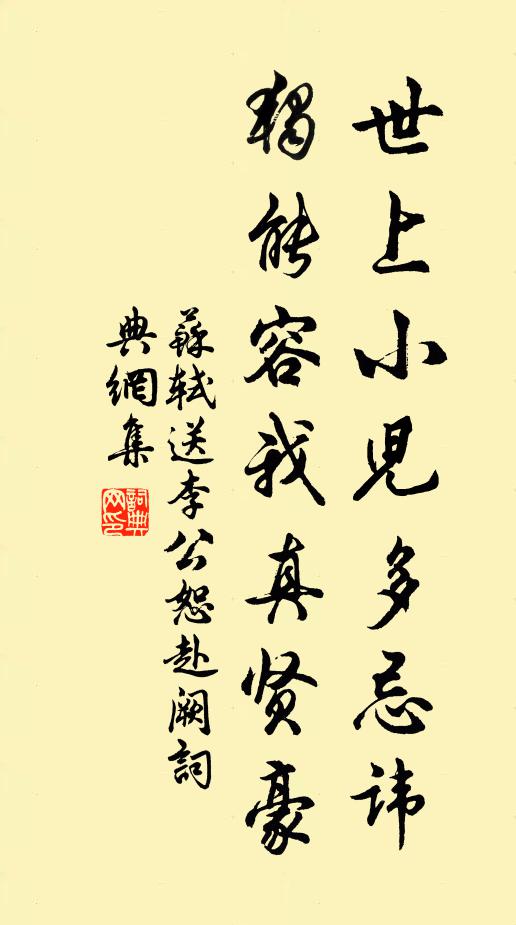 世上小兒多忌諱
獨能容我真贤豪
蘇軾送李公恕赴阙詞
典網集
詞典网印